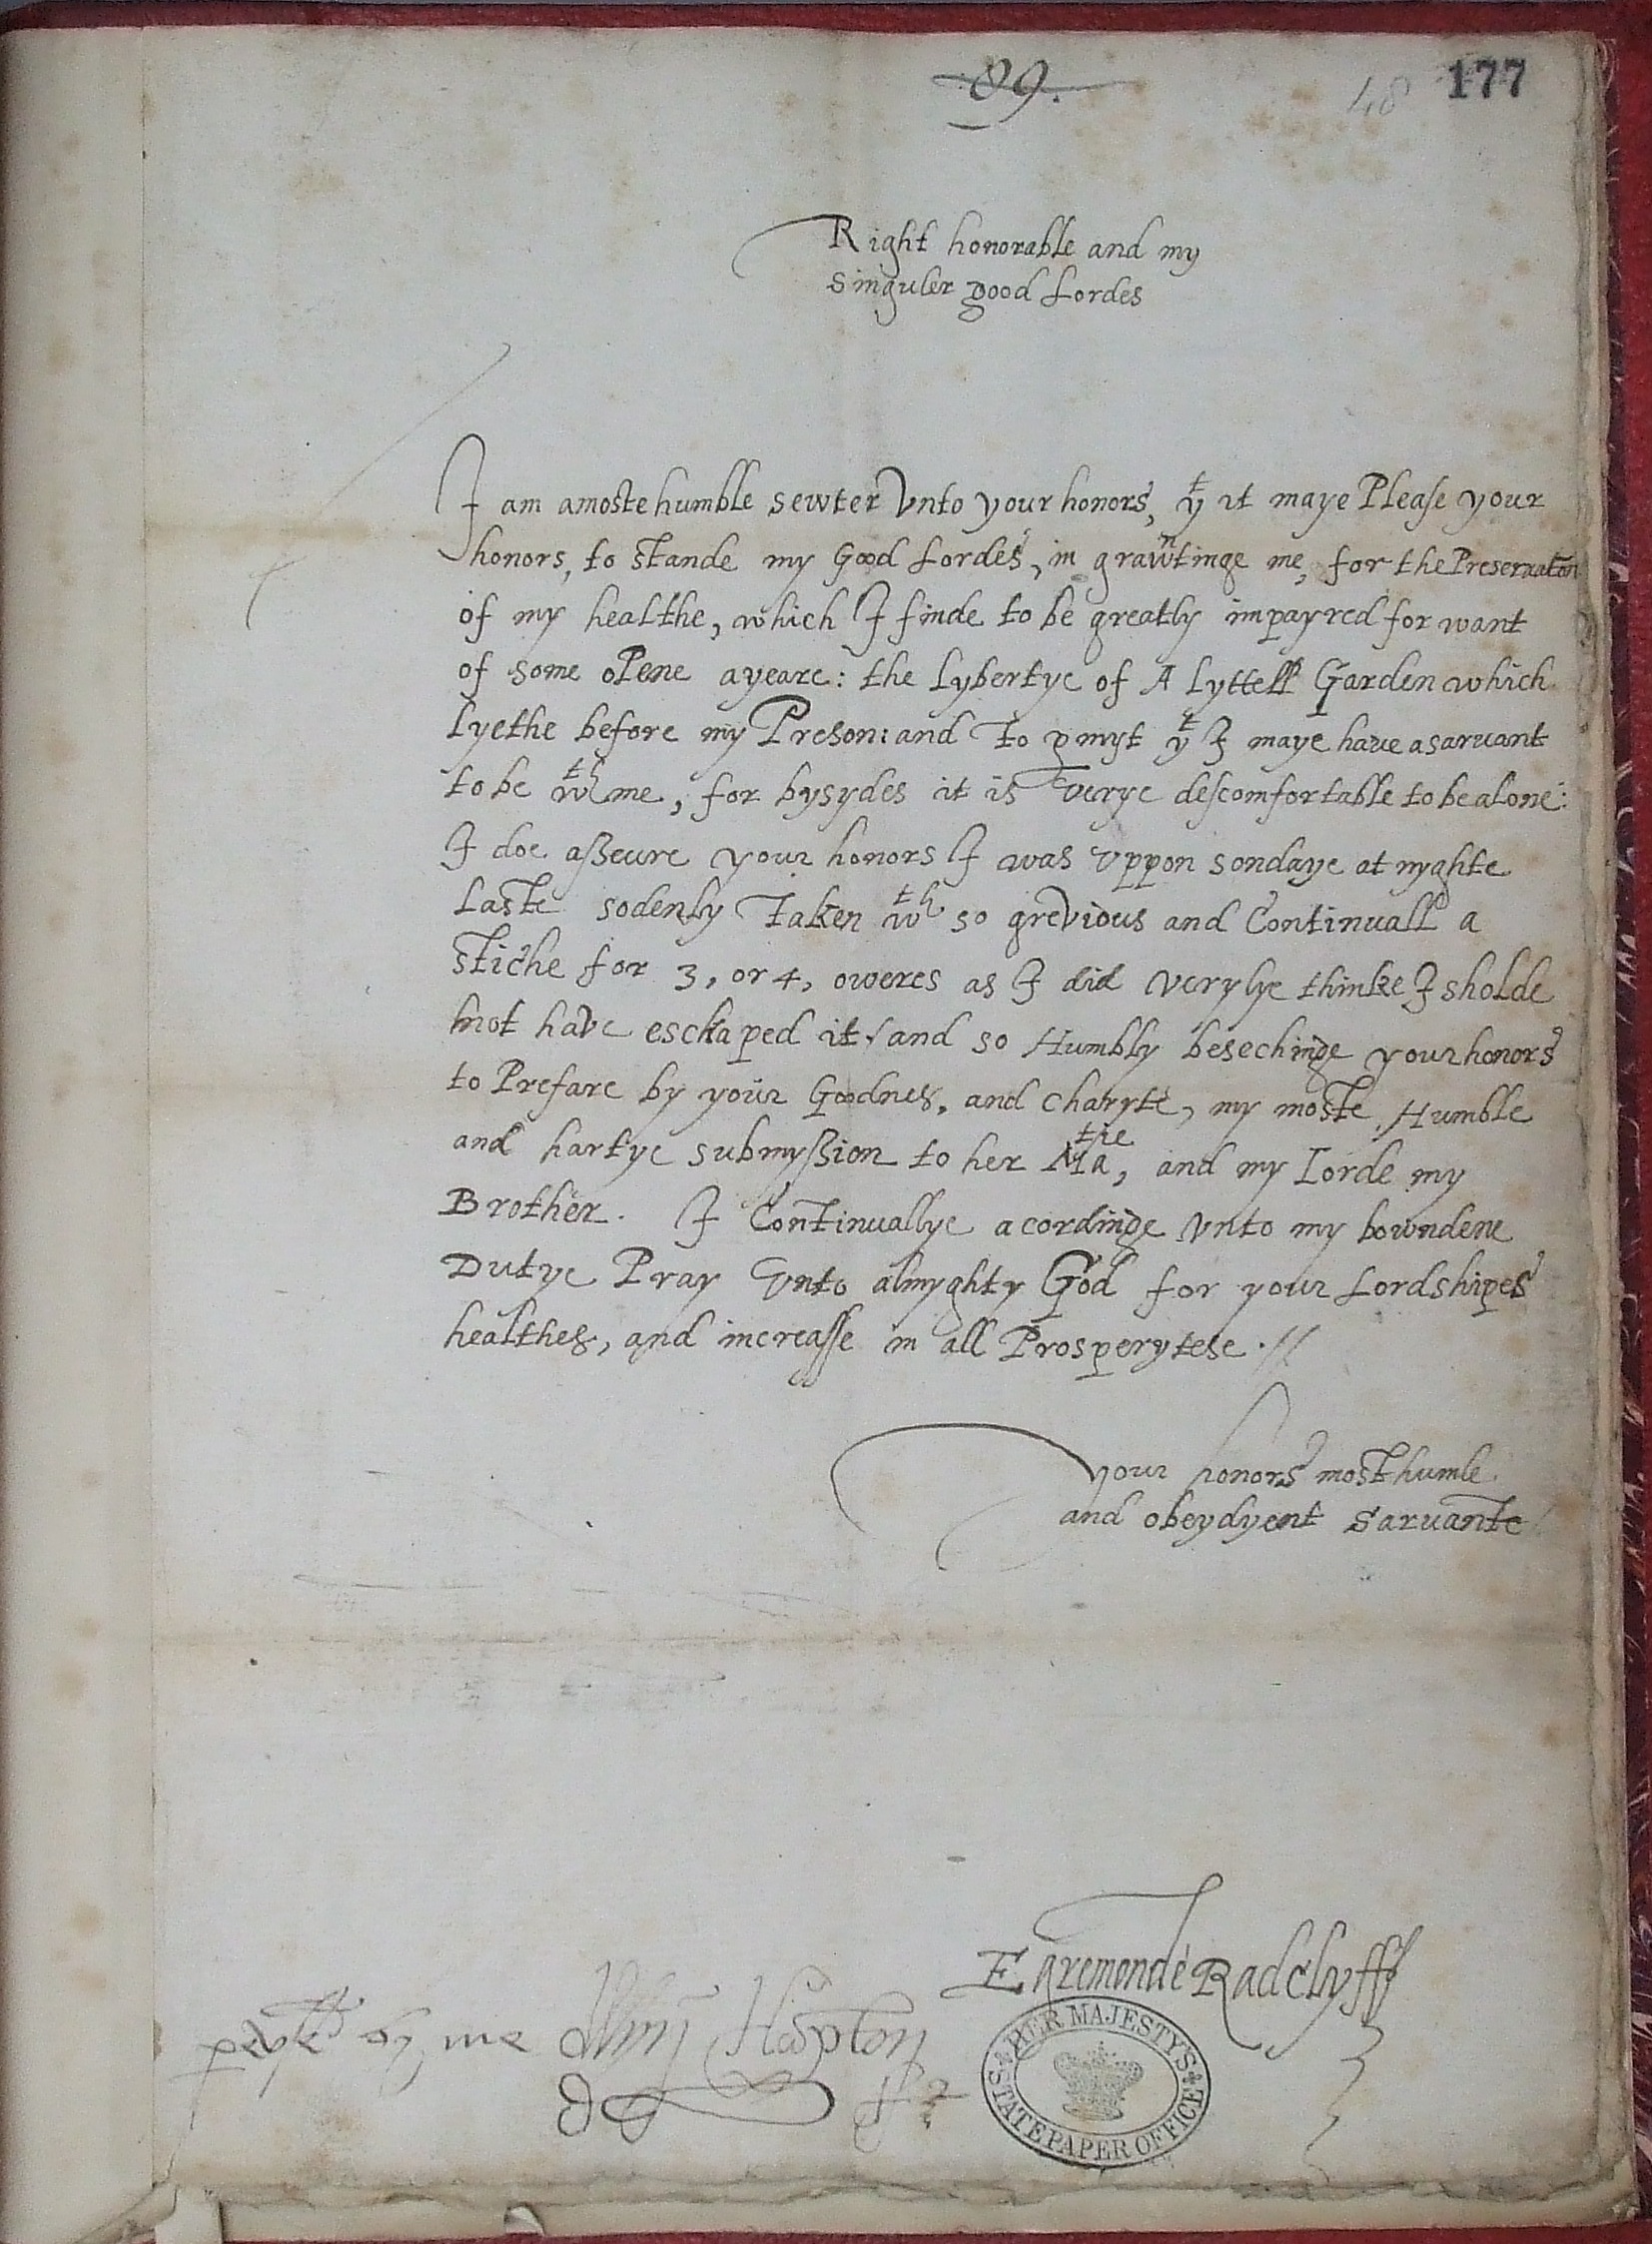 89.
48 177
Right honorable and my
singuler good Lordes
I am a moste humble sewter Vnto your honors, yt it maye Please your
honors, to stande my Good Lordes, in grawntinge me, for the Preseruaton
of my healthe, which I finde to be greatly impayred for want
of some oPene ayeare: the Lybertye of A Lyttell Garden which
Lyethe before my Preson: and To pmyt yt I maye haue a saruant
to be wth me, for bysydes it is verye descomfortable to be alone:
I doe asseure your honors I was vppon sondaye at nyghte
Laste sodenly Taken wth so greVious and Continuall a
stiche for 3, or 4, oweres as I did verylye thinke I sholde
not haVe esckaped it / and so Humbly besechinge your honors
to Prefare by your Goodnes, and charyte, my moste Humble
and hartye submyssion to her Matie, and my Lorde my
Brother. I Continuallye acordinge vnto my bowndene
Dutye Pray Vnto almyghty God for your Lordshipes
healthes, and increasse in all Prosperytese .//
your honors most humle
and obeydyent saruante
Egremonde Radclyff
by me Hopton
HER MAJESTY'S
STATE PAPER OFFICE